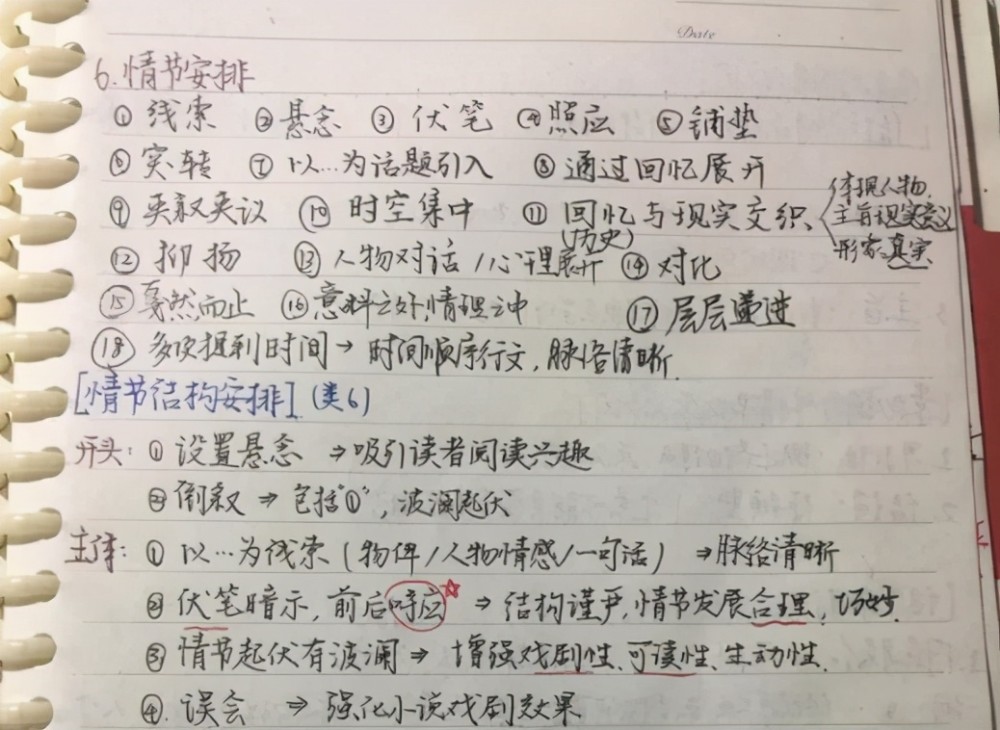 Date
6.情节安排
①线索 ②悬念 ③伏笔 ④照应 ⑤铺垫
⑥突转 ⑦以…为话题引入 ⑧通过回忆展开
⑨夹叙夹议 ⑩时空集中 ⑪回忆与现实交织
(历史)
体现人物
主旨现实意义
形象真实
⑫抑扬 ⑬人物对话/心理展开 ⑭对比
⑮戛然而止 ⑯意料之外,情理之中 ⑰层层递进
⑱多次提到时间→时间顺序行文,脉络清晰.
[情节结构安排](类6)
开头:①设置悬念⇒吸引读者阅读兴趣
②倒叙⇒包括“①”,波澜起伏
主体:①以…为线索(物件/人物情感/一句话)⇒脉络清晰
②伏笔暗示,前后呼应☆⇒结构谨严,情节发展合理,巧妙.
③情节起伏有波澜⇒增强戏剧性、可读性、生动性.
④.误会⇒强化小说戏剧效果